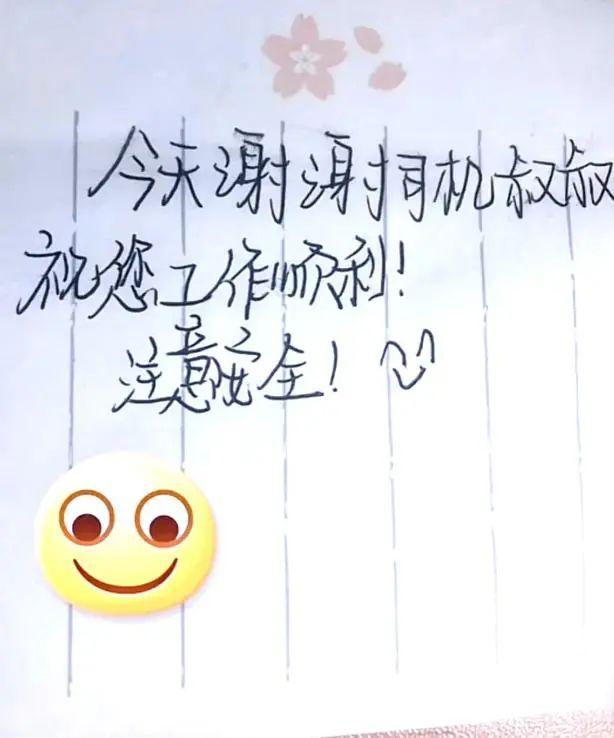 今天谢谢司机叔叔
祝您工作顺利!
注意安全!